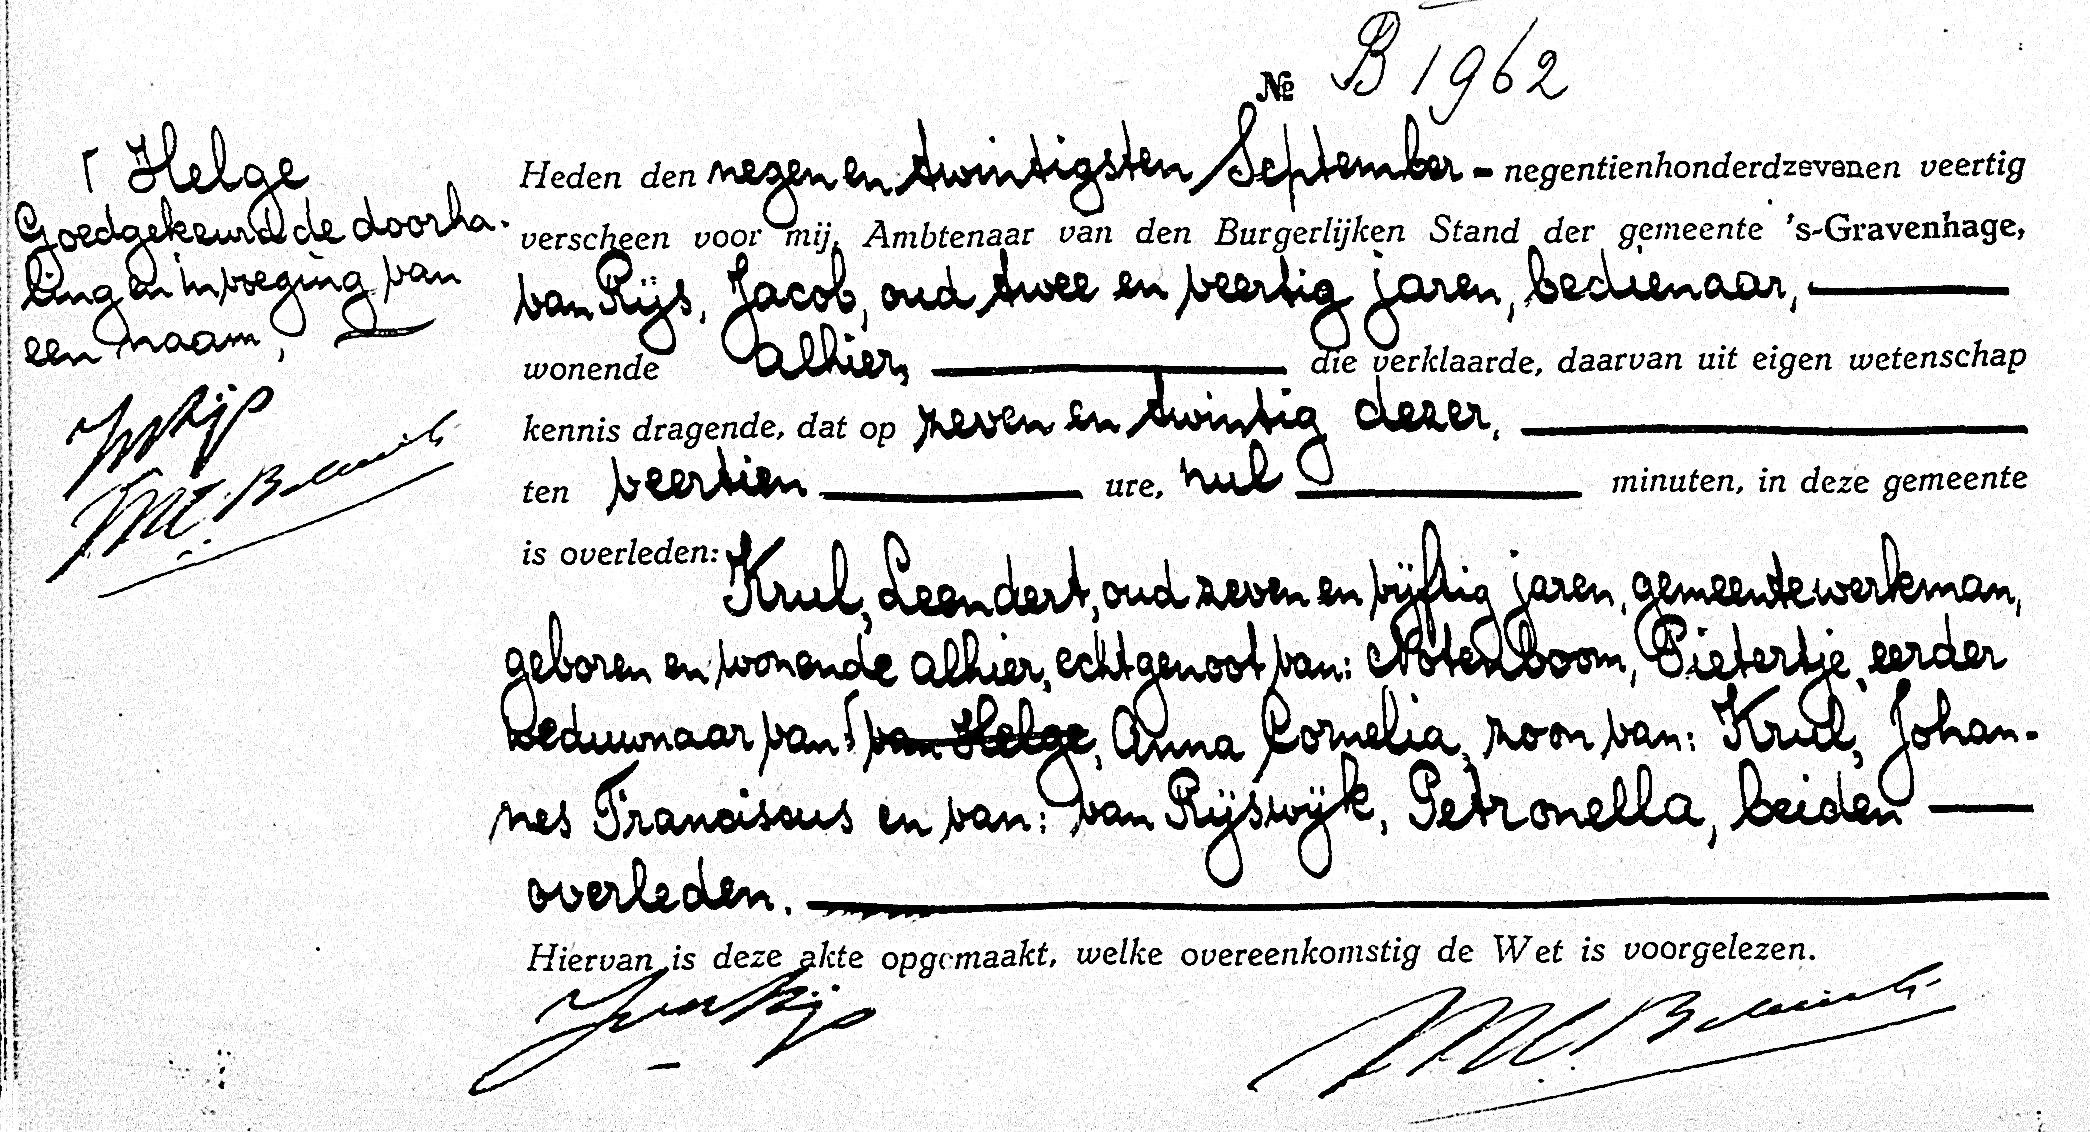 № B 1962
Heden den negen en twintigsten September - negentienhonderdzevenen veertig
verscheen voor mij, Ambtenaar van den Burgerlijken Stand der gemeente 's-Gravenhage,
van Rijs, Jacob, oud twee en veertig jaren, bedienaar,
wonende alhier, die verklaarde, daarvan uit eigen wetenschap
kennis dragende, dat op zeven en twintig dezer,
ten veertien ure, nul minuten, in deze gemeente
is overleden:
Krul, Leendert, oud zeven en vijftig jaren, gemeentewerkman,
geboren en wonende alhier, echtgenoot van: Notenboom, Pietertje, eerder
weduwnaar van: ┌ van Helge, Anna Cornelia, zoon van: Krul, Johan-
nes Franciscus en van: van Rijswijk, Petronella, beiden
overleden.
Hiervan is deze akte opgemaakt, welke overeenkomstig de Wet is voorgelezen.
JvanRijs
┌ Helge
Goedgekeurd de doorha-
ling en invoeging van
een naam,
JvRijs